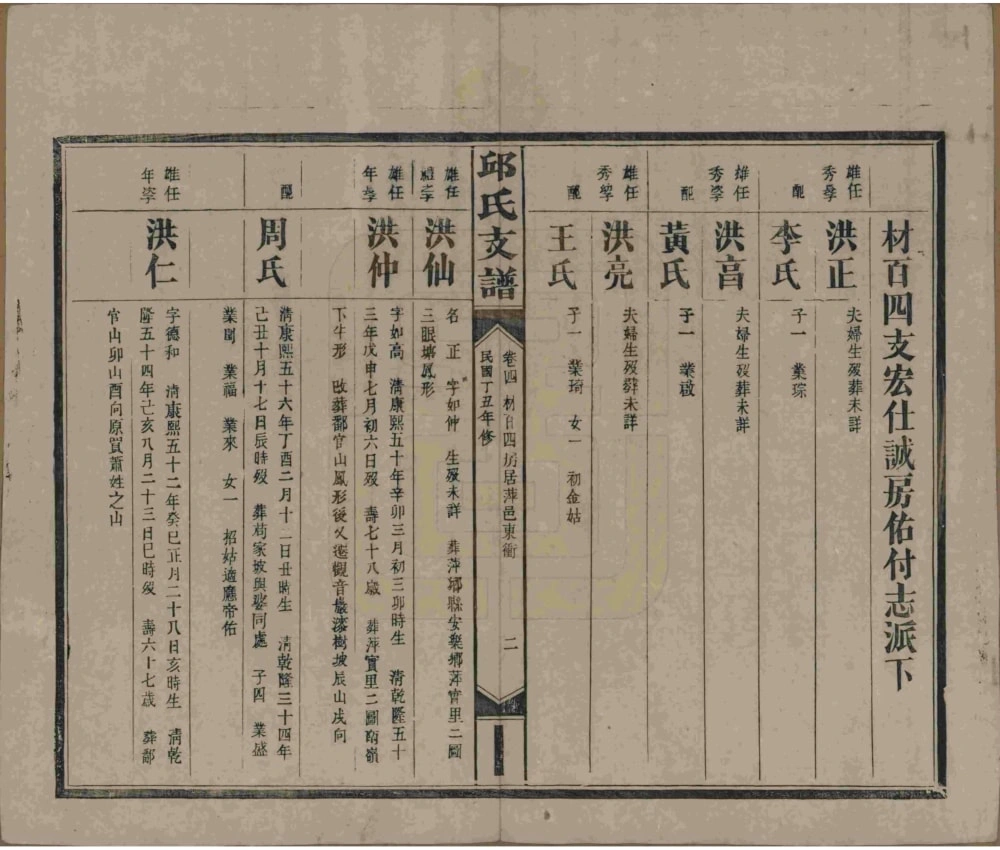 材百四支宏仕誠房佑付志派下
雄任
秀學
洪正
夫婦生歿葬未詳
配
李氏
子一 業琮
雄任
秀學
洪高
夫婦生歿葬未詳
配
黃氏
子一 業啟
雄任
秀學
洪亮
夫婦生歿葬未詳
配
王氏
子一 業琦 女一 初金姑
邱氏支譜
卷四 材百四房居萍邑東衙
民國丁丑年修
二
雄任
洪仙
名正 字如仲 生歿未詳 葬萍鄉縣安樂鄉萍實里二圖
三眼塘鳳形
雄任
年學
洪仲
字如高 清康熙五十年辛卯三月初三卯時生 清乾隆五十
三年戊申七月初六日歿 壽七十八歲 葬萍實里二圖南嶺
下牛形 改葬鄱官山鳳形後又遷觀音巖漆樹坡辰山戌向
配
周氏
清康熙五十六年丁酉二月十一日丑時生 清乾隆三十四年
己丑十月十七日辰時歿 葬苟家坡與婆同處 子四 業盛
業周 業福 業來 女一 招姑適廳帝佑
雄任
年學
洪仁
字德和 清康熙五十二年癸巳正月二十八日亥時生 清乾
隆五十四年己亥八月二十三日巳時歿 壽六十七歲 葬鄱
官山卯山酉向原買蕭姓之山